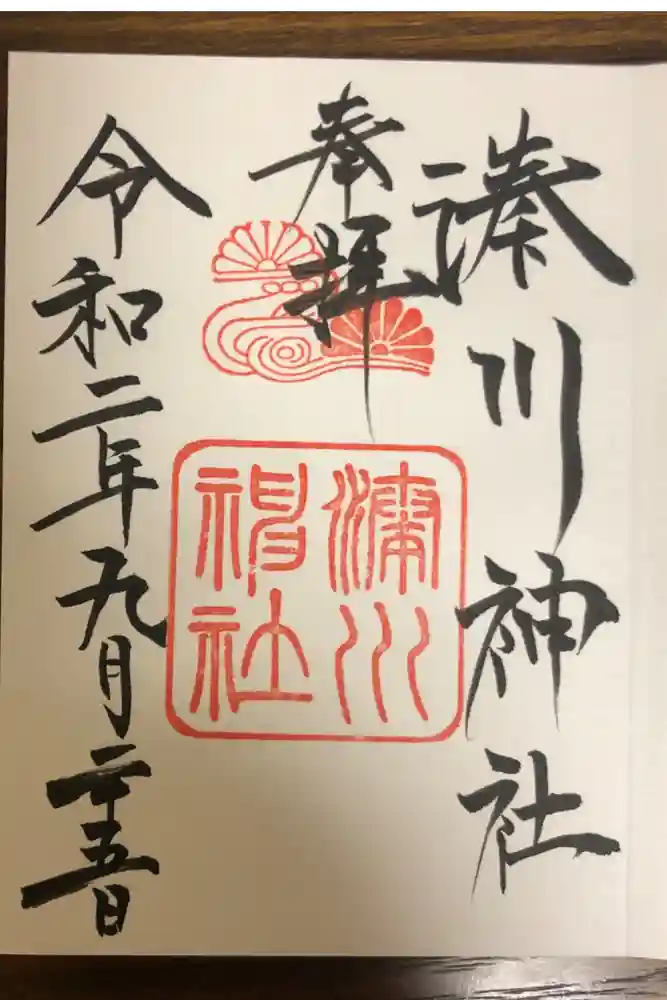 湊川神社
奉拝
湊川神社
令和二年九月二十五日